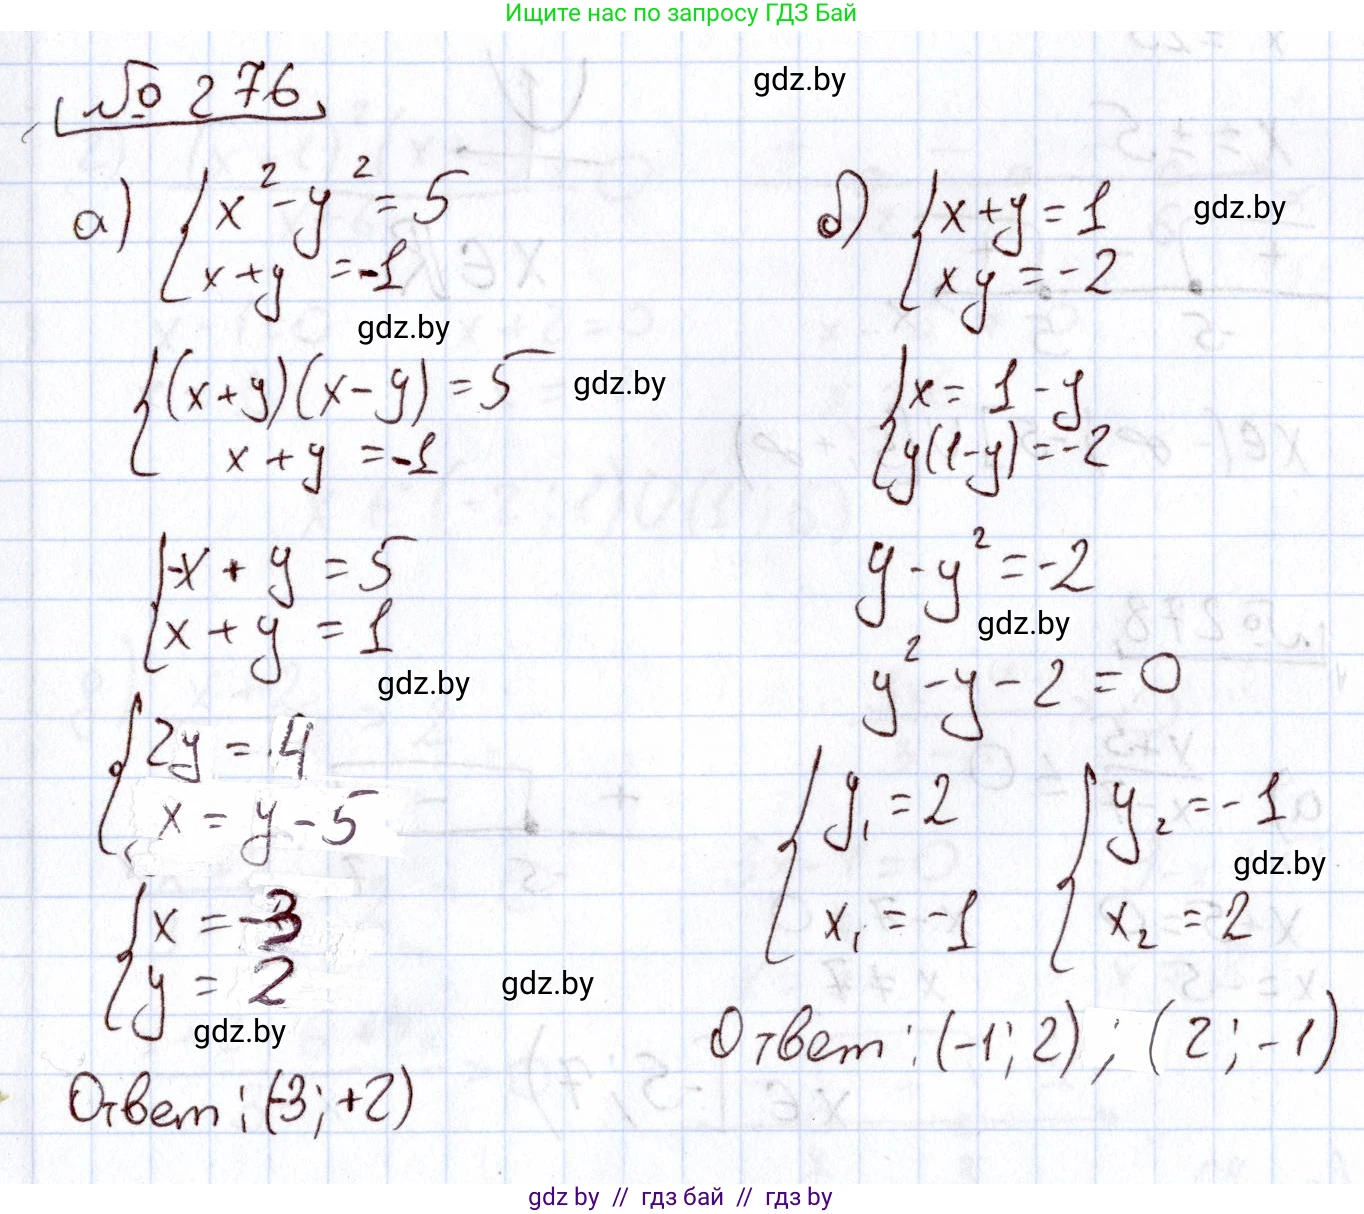 Ищите нас по запросу ГДЗ Бай
№ 276
gdz.by
а) { x² - y² = 5
x + y = -1
gdz.by
{ (x + y)(x - y) = 5
x + y = -1
gdz.by
{ -x + y = 5
x + y = 1
gdz.by
{ 2y = 4
x = y - 5
{ x = -3
y = 2
gdz.by
gdz.by
Ответ: (-3; +2)
б) { x + y = 1
xy = -2
gdz.by
{ x = 1 - y
y(1 - y) = -2
y - y² = -2
gdz.by
y² - y - 2 = 0
{ y₁ = 2
x₁ = -1
{ y₂ = -1
x₂ = 2
gdz.by
Ответ: (-1; 2); (2; -1)
gdz by // гдз бай // гдз by